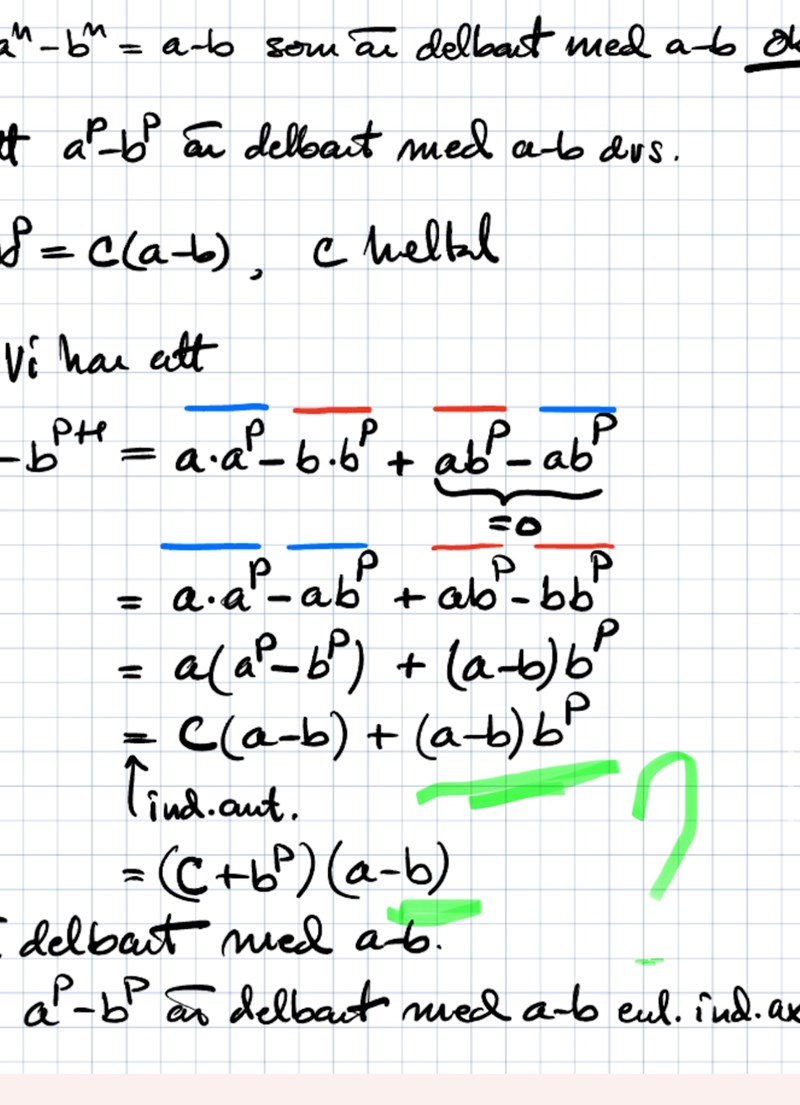 aⁿ-bⁿ = a-b som är delbart med a-b Ok
tt aᵖ-bᵖ är delbart med a-b dvs.
bᵖ = C(a-b), C heltal
Vi har att
-bᵖ⁺¹ = a·aᵖ - b·bᵖ + abᵖ - abᵖ
=0
= a·aᵖ - abᵖ + abᵖ - bbᵖ
= a(aᵖ-bᵖ) + (a-b)bᵖ
= C(a-b) + (a-b)bᵖ
↑ ind.ant. ?
= (C+bᵖ)(a-b)
delbart med a-b.
aᵖ-bᵖ är delbart med a-b enl. ind.ax